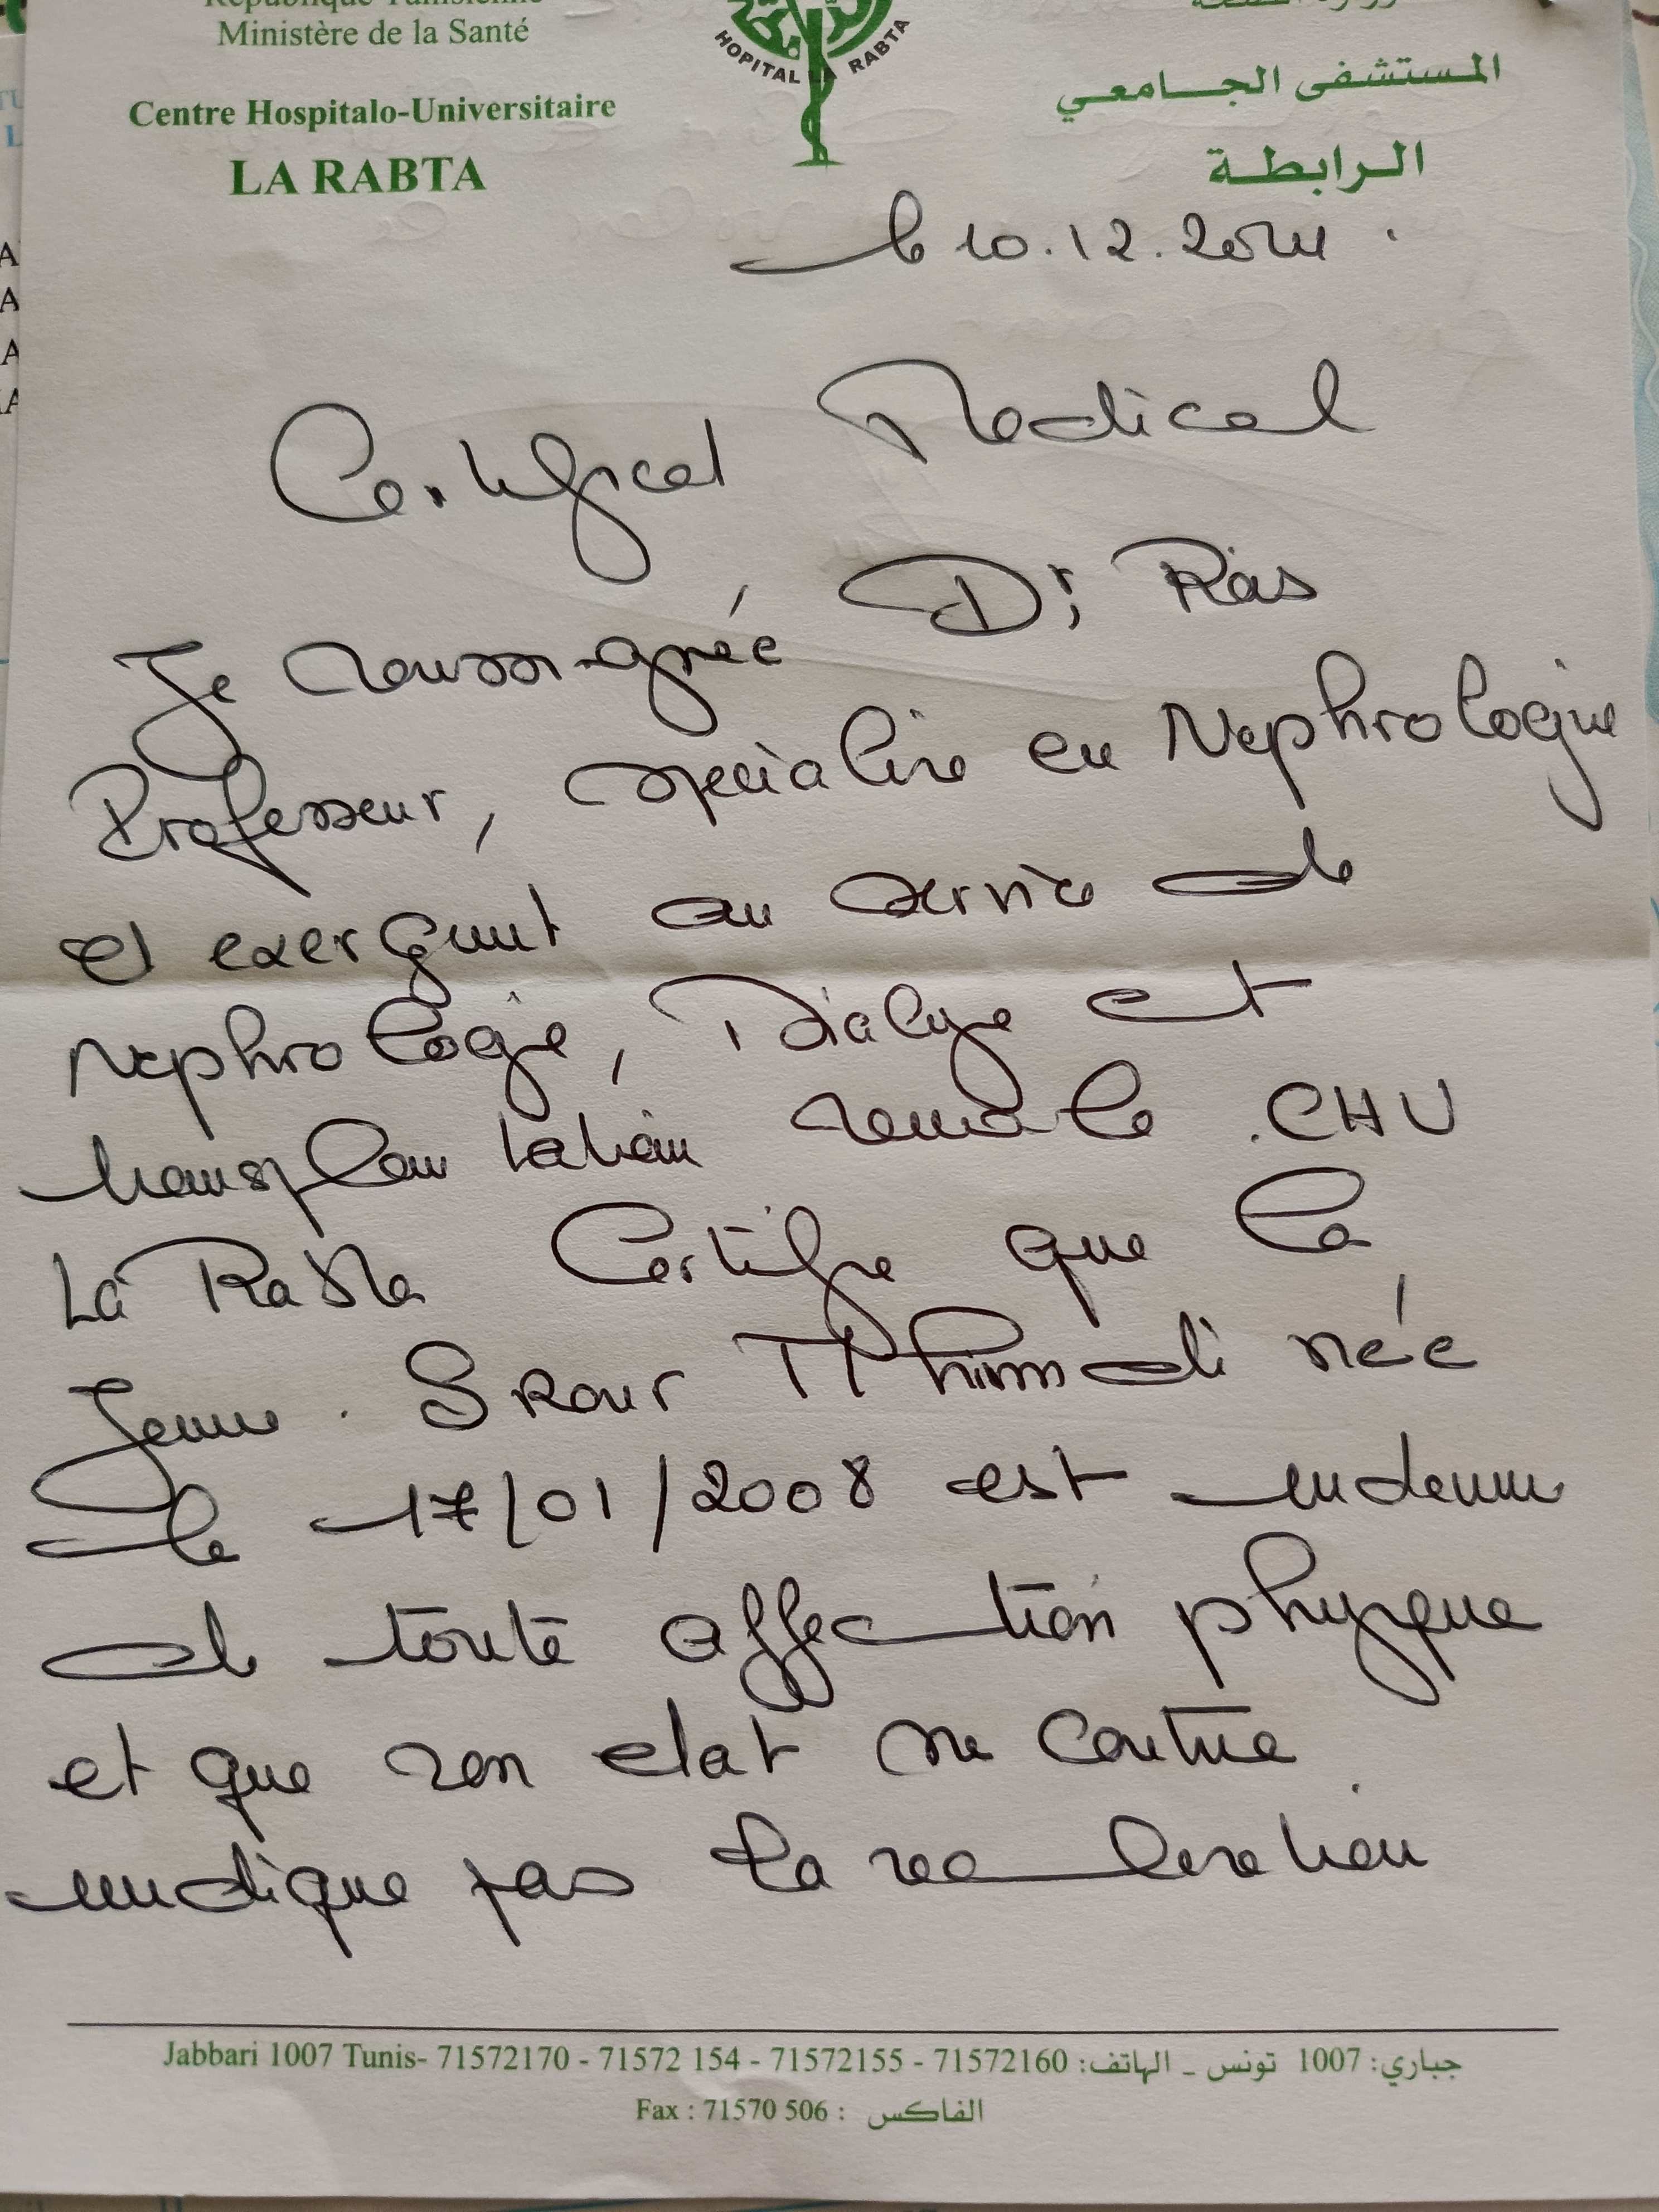 République Tunisienne
Ministère de la Santé
Centre Hospitalo-Universitaire
LA RABTA
HOPITAL LA RABTA
وزارة الصحة
المستشفى الجامعي
الرابطة
le 10.12.2024.
Certificat Medical
Je soussignée Dr, Ras
Professeur, specialiste en Nephrologie
et exerçant au service de
Nephrologie, Dialyse et
transplantation renale. CHU
La Rabta Certifie que la
Jeune. Srour née
le 17/01/2008 est indemne
de toute affection physique
et que son etat ne contre
indique pas la
Jabbari 1007 Tunis- 71572170 - 71572 154 - 71572155 - 71572160 :جباري: 1007 تونس ـ الهاتف
Fax : 71570 506 : الفاكس